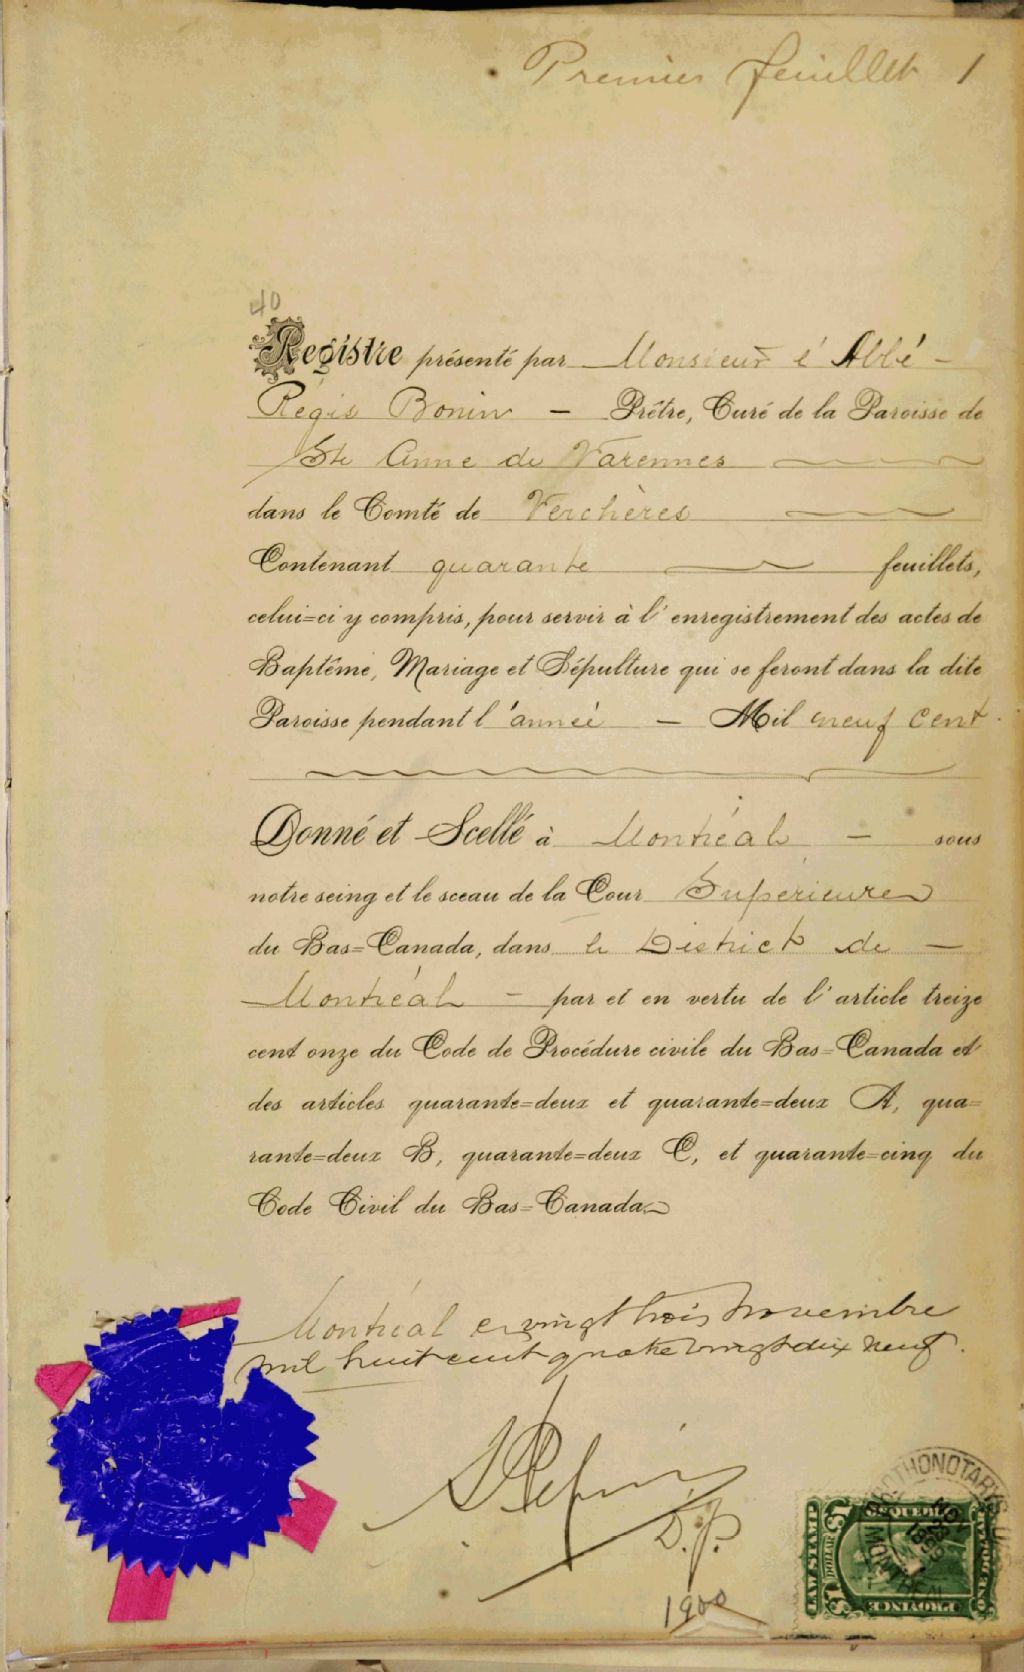 Premier feuillet 1
40
Registre présenté par Monsieur l'Abbé -
Régis Bonin - Prêtre, Curé de la Paroisse de
Ste Anne de Varennes
dans le Comté de Verchères
Contenant quarante feuillets,
celui=ci y compris, pour servir à l'enregistrement des actes de
Baptême, Mariage et Sépulture qui se feront dans la dite
Paroisse pendant l'année - Mil neuf cent.
Donné et Scellé à Montréal - sous
notre seing et le sceau de la Cour Supérieure
du Bas=Canada, dans le District de -
Montréal - par et en vertu de l'article treize
cent onze du Code de Procédure civile du Bas=Canada et
des articles quarante=deux et quarante=deux A, qua=
rante=deux B, quarante=deux C, et quarante=cinq du
Code Civil du Bas=Canada.
Montréal ce vingt trois Novembre
mil huit cent quatre vingt dix neuf.
D.P.
1900
PROTHONOTARY'S
NOV
MONTREAL
LAW STAMP
$1 DOLLAR $1
PROVINCE
QUEBEC
ONE DOLLAR